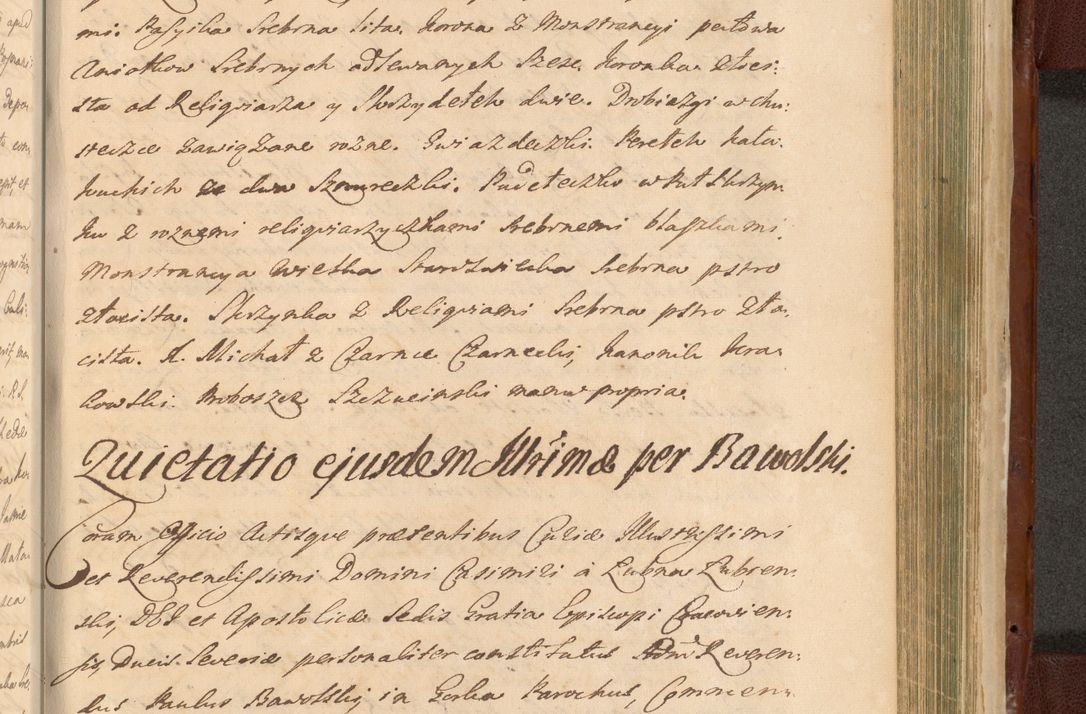 mi. Pasyika Srebrna lita. Korona z Monstrancyi perłowa
Kwiatkow Srebrnych odlewanych Szesc. Koronka złoci:
sta od Religviarza y Skrzydełek dwie. Drobiazgi w chu:
steczce zawiązane rozne. Gwiazdeczki. Perełek kała:
kuckich dwa Sznureczki. Pudełeczko w Puł Skrzyn:
ku z roznemi religviarzyczkami Srebrnemi blaszkami.
Monstrancya wielka Staroswiecka Srebrna pstro
złocista. Skrzynka z Religviami Srebrna pstro zło:
cista. X. Michał z Czarnce Czarnecki, Kanonik Kra:
kowski. Proboszcz Szczucinski manu propria.
Quietatio ejusdem Illrimæ per Bawolski.
Coram Officio Actisque præsentibus Curiæ Illustrissimi
et Reverendissimi Domini Casimiri à Lubna Lubien:
ski, DEI et Apostolicæ Sedis Gratia Episcopi Cracovien:
sis, Ducis Severiæ personaliter constitutus Admodum Reveren:
dus Paulus Bawolski, in Gorka Parochus, Commen: